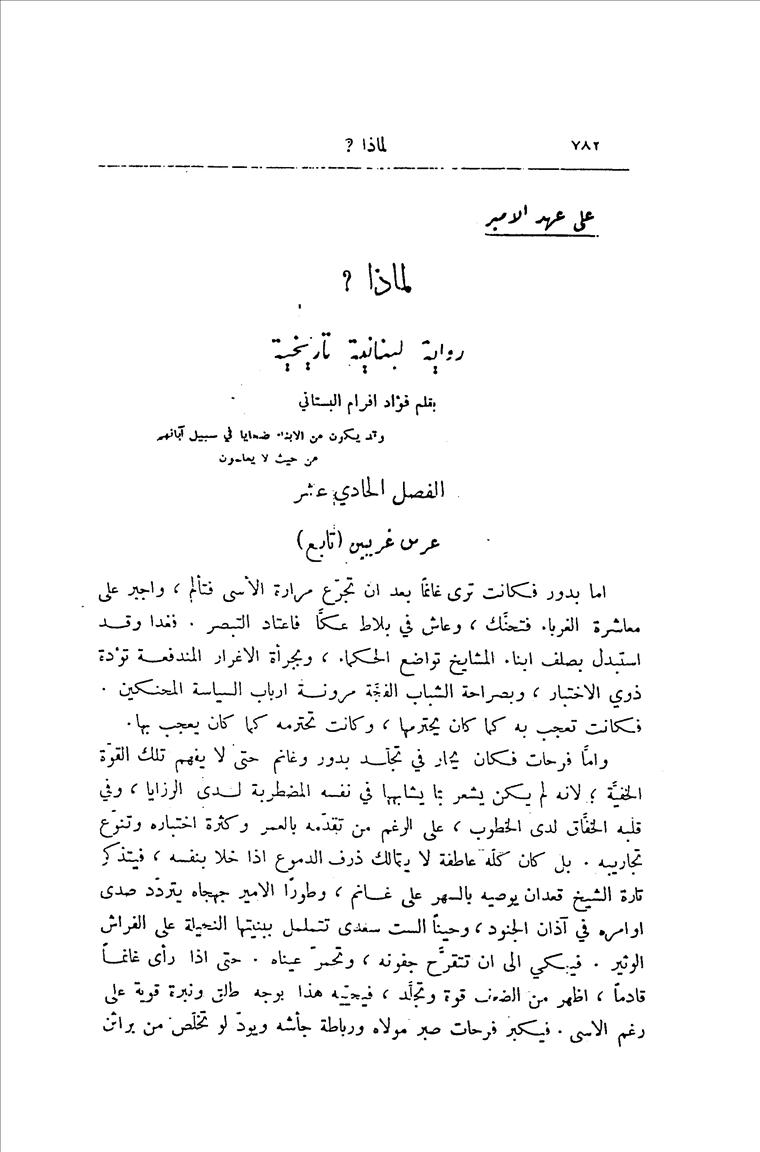 ٧٨٢ لماذا ?
على عهد الامير
لماذا ?
رواية لبنانية تاريخية
بقلم فؤاد افرام البستاني
وقد يكون من الابناء ضحايا في سبيل آبائهم
من حيث لا يعلمون
الفصل الحادي عشر
عرس غريبين (تابع)
اما بدور فكانت ترى غانماً بعد ان تجرّع مرارة الأسى فتألم ، واجبر على
معاشرة الغرباء فتحنَّك ، وعاش في بلاط عكّا فاعتاد التبصر . فغدا وقد
استبدل بصلف ابناء المشايخ تواضع الحكماء ، وبجرأة الاغرار المندفعة تؤدة
ذوي الاختبار ، وبصراحة الشباب الفجّة مرونة ارباب السياسة المحنكين .
فكانت تعجب به كما كان يحترمها ، وكانت تحترمه كما كان يعجب بها .
وامَّا فرحات فكان يحار في تجلّد بدور وغانم حتى لا يفهم تلك القوّة
الخفيَّة ؛ لانه لم يكن يشعر بما يشابهها في نفسه المضطربة لدى الرزايا ، وفي
قلبه الخفَّاق لدى الخطوب ، على الرغم من تقدّمه بالعمر وكثرة اختباره وتنوّع
تجاريبه . بل كان كلّه عاطفة لا يتمالك ذرف الدموع اذا خلا بنفسه ، فيتذكر
تارة الشيخ قعدان يوصيه بالسهر على غانم ، وطورًا الامير جهجاه يتردّد صدى
اوامره في آذان الجنود ، وحيناً الست سعدى تتململ ببنيتها النحيلة على الفراش
الوثير . فيبكي الى ان تتقرَّح جفونه ، وتحمرّ عيناه . حتى اذا رأى غانمـاً
قادماً ، اظهر من الضعف قوة وتجلَّد ، فيحيّيه هذا بوجه طلق ونبرة قوية على
رغم الاسى . فيكبر فرحات صبر مولاه ورباطة جأشه ويودّ لو تخلّص من براثن